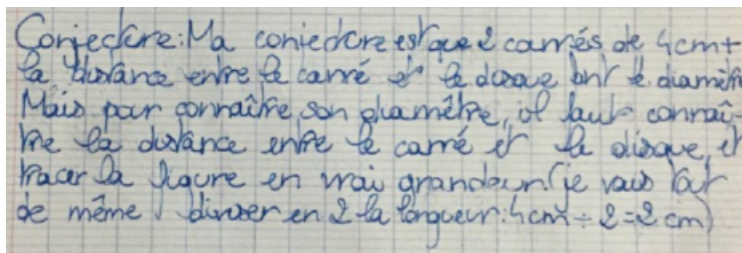 Conjecture: Ma conjecture est que 2 carrés de 4cm +
la distance entre le carré et le disque font le diamètre
Mais pour connaître son diamètre, il faut connaî-
tre la distance entre le carré et le disque, et
tracer la figure en vrai grandeur (je vais tout
de même diviser en 2 la longueur: 4cm ÷ 2 = 2 cm)